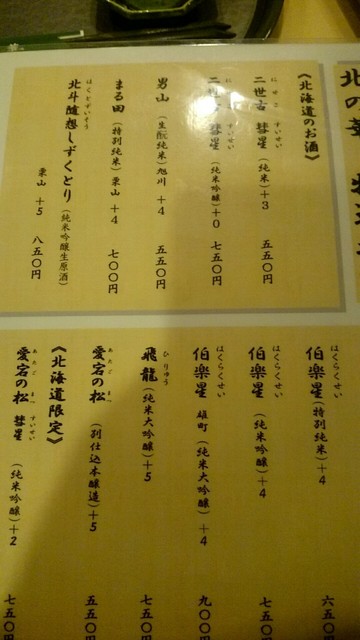 《北海道のお酒》
にせこ すいせい
二世古 彗星 (純米)+3 五五〇円
すいせい
彗星 (純米吟醸)+0 七五〇円
男山 (生酛純米)旭川 +4 五五〇円
まる田 (特別純米)栗山 +4 七〇〇円
ほくとずいそう
北斗随想しずくどり(純米吟醸生原酒)
栗山 +5 八五〇円
はくらくせい
伯楽星 (特別純米)+4 六五〇
はくらくせい
伯楽星 (純米吟醸)+4 七五〇
はくらくせい
伯楽星 雄町 (純米大吟醸)+4 九〇〇
ひりゅう
飛龍 (純米大吟醸)+5 七五〇
あたご まつ
愛宕の松 (別仕込本醸造)+5 五五〇
《北海道限定》
あたご まつ すいせい
愛宕の松 彗星 (純米吟醸)+2 七五〇